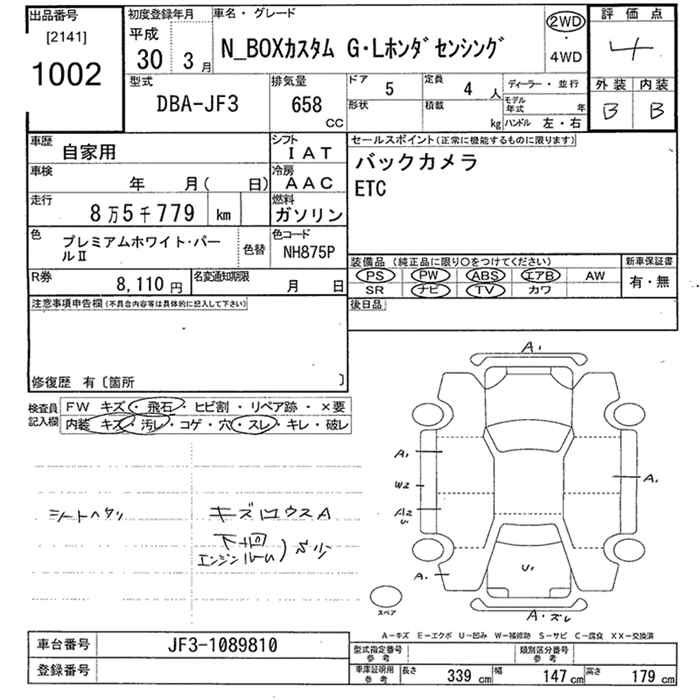 出品番号
[2141]
1002
初度登録年月
平成
30年3月
車名・グレード
N_BOXカスタム G・Lホンダセンシング
2WD
・
4WD
評価点
4
外装 内装
B B
型式
DBA-JF3
排気量
658
CC
ドア 5
定員 4 人
形状
積載 kg
ディーラー・並行
モデル年式 年
ハンドル 左・右
車歴
自家用
シフト
IAT
セールスポイント(正常に機能するものに限ります)
バックカメラ
ETC
車検
年 月( 日)
冷房
AAC
走行
8万5千779 km
燃料
ガソリン
色
プレミアムホワイト・パールⅡ
色替
色コード
NH875P
R券
8,110円
名変通知期限
月 日
装備品(純正品に限り○をつけてください)
PS PW ABS エアB AW
SR ナビ TV カワ
新車保証書
有・無
後日品
注意事項申告欄(不具合内容等は具体的に記入して下さい)
修復歴 有〔箇所 〕
検査員記入欄
FW キズ・飛石・ヒビ割・リペア跡・×要
内装 キズ・汚レ・コゲ・穴・スレ・キレ・破レ
シートヘタリ
キズロウスA
下回
エンジンルーム)サ少
A1
A1
W2
A2
U1
A1
A1
U1
A・ズレ
スペア
A−キズ E−エクボ U−凹み W−補修跡 S−サビ C−腐食 XX−交換済
車台番号
JF3-1089810
登録番号
型式指定番号
参考
類別区分番号
参考
車庫証明用
参考
長さ 339 cm
幅 147 cm
高さ 179 cm